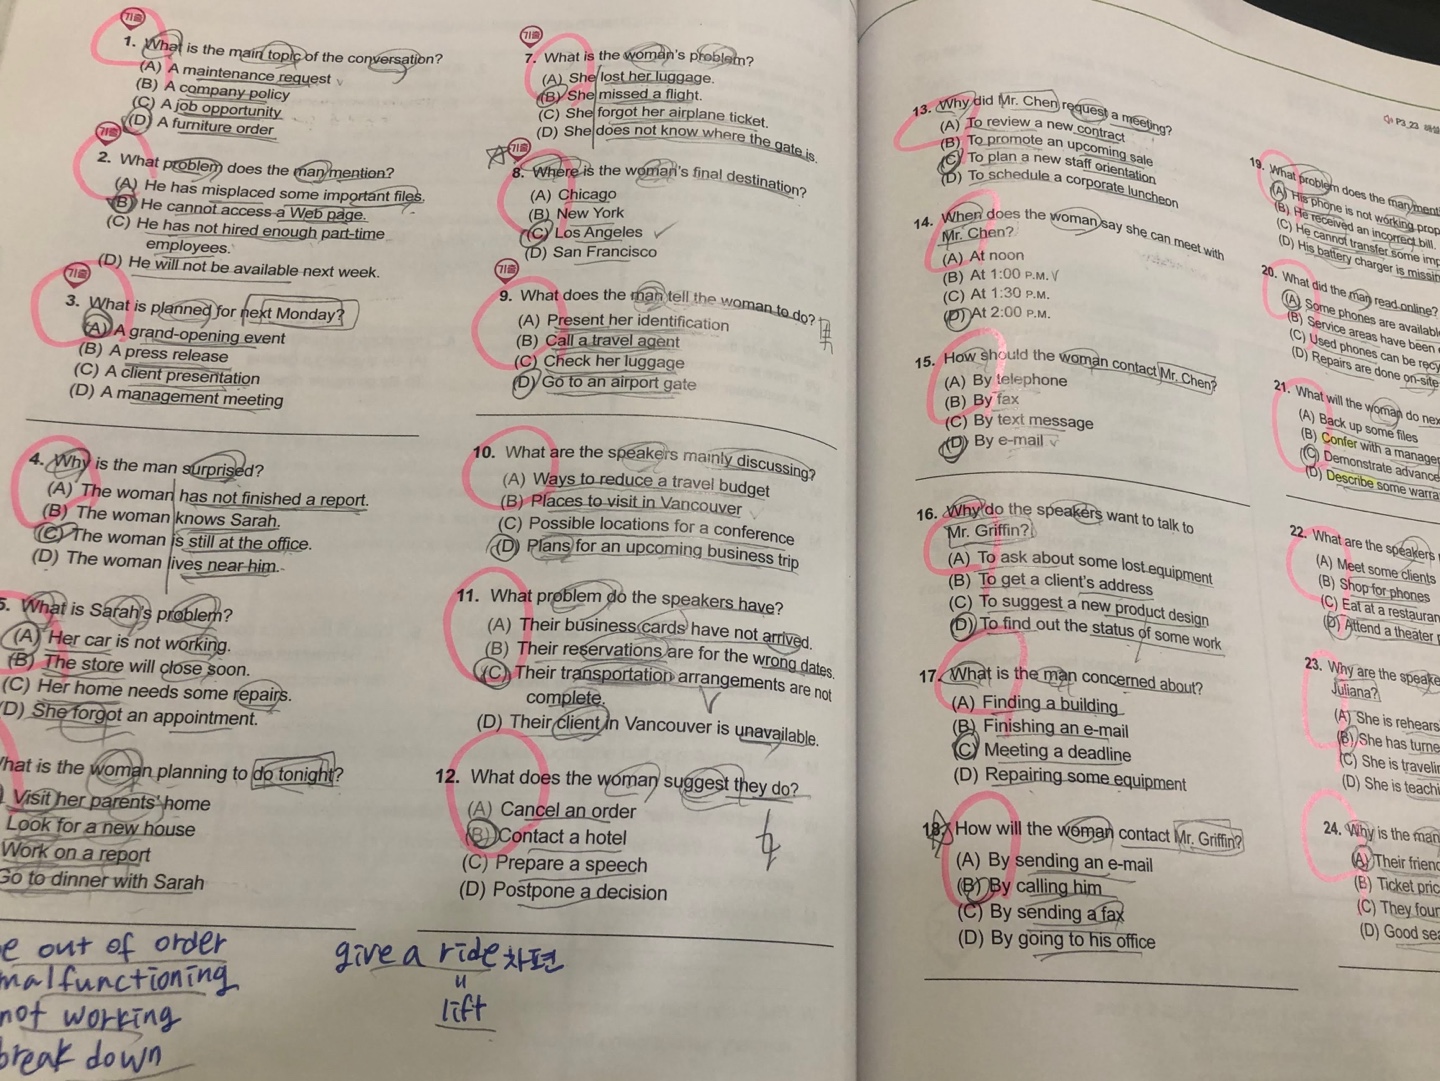 기출
1. What is the main topic of the conversation?
(A) A maintenance request
(B) A company policy
(C) A job opportunity
(D) A furniture order
기출
2. What problem does the man mention?
(A) He has misplaced some important files.
(B) He cannot access a Web page.
(C) He has not hired enough part-time
employees.
(D) He will not be available next week.
기출
3. What is planned for next Monday?
(A) A grand-opening event
(B) A press release
(C) A client presentation
(D) A management meeting
4. Why is the man surprised?
(A) The woman has not finished a report.
(B) The woman knows Sarah.
(C) The woman is still at the office.
(D) The woman lives near him.
5. What is Sarah's problem?
(A) Her car is not working.
(B) The store will close soon.
(C) Her home needs some repairs.
(D) She forgot an appointment.
What is the woman planning to do tonight?
Visit her parents' home
Look for a new house
Work on a report
Go to dinner with Sarah
e out of order
malfunctioning
not working
break down
give a ride 차편
=
lift
기출
7. What is the woman's problem?
(A) She lost her luggage.
(B) She missed a flight.
(C) She forgot her airplane ticket.
(D) She does not know where the gate is.
기출
8. Where is the woman's final destination?
(A) Chicago
(B) New York
(C) Los Angeles
(D) San Francisco
기출
9. What does the man tell the woman to do?
(A) Present her identification
(B) Call a travel agent
(C) Check her luggage
(D) Go to an airport gate
10. What are the speakers mainly discussing?
(A) Ways to reduce a travel budget
(B) Places to visit in Vancouver
(C) Possible locations for a conference
(D) Plans for an upcoming business trip
11. What problem do the speakers have?
(A) Their business cards have not arrived.
(B) Their reservations are for the wrong dates.
(C) Their transportation arrangements are not
complete.
(D) Their client in Vancouver is unavailable.
12. What does the woman suggest they do?
(A) Cancel an order
(B) Contact a hotel
(C) Prepare a speech
(D) Postpone a decision
13. Why did Mr. Chen request a meeting?
(A) To review a new contract
(B) To promote an upcoming sale
(C) To plan a new staff orientation
(D) To schedule a corporate luncheon
14. When does the woman say she can meet with
Mr. Chen?
(A) At noon
(B) At 1:00 P.M.
(C) At 1:30 P.M.
(D) At 2:00 P.M.
15. How should the woman contact Mr. Chen?
(A) By telephone
(B) By fax
(C) By text message
(D) By e-mail
16. Why do the speakers want to talk to
Mr. Griffin?
(A) To ask about some lost equipment
(B) To get a client's address
(C) To suggest a new product design
(D) To find out the status of some work
17. What is the man concerned about?
(A) Finding a building
(B) Finishing an e-mail
(C) Meeting a deadline
(D) Repairing some equipment
18. How will the woman contact Mr. Griffin?
(A) By sending an e-mail
(B) By calling him
(C) By sending a fax
(D) By going to his office
P3_23 해설
19. What problem does the man menti
(A) His phone is not working prop
(B) He received an incorrect bill.
(C) He cannot transfer some imp
(D) His battery charger is missin
20. What did the man read online?
(A) Some phones are availabl
(B) Service areas have been
(C) Used phones can be recy
(D) Repairs are done on-site
21. What will the woman do nex
(A) Back up some files
(B) Confer with a manager
(C) Demonstrate advance
(D) Describe some warra
22. What are the speakers
(A) Meet some clients
(B) Shop for phones
(C) Eat at a restauran
(D) Attend a theater
23. Why are the speake
Juliana?
(A) She is rehears
(B) She has turne
(C) She is travelin
(D) She is teachi
24. Why is the man
(A) Their friend
(B) Ticket pric
(C) They four
(D) Good sea